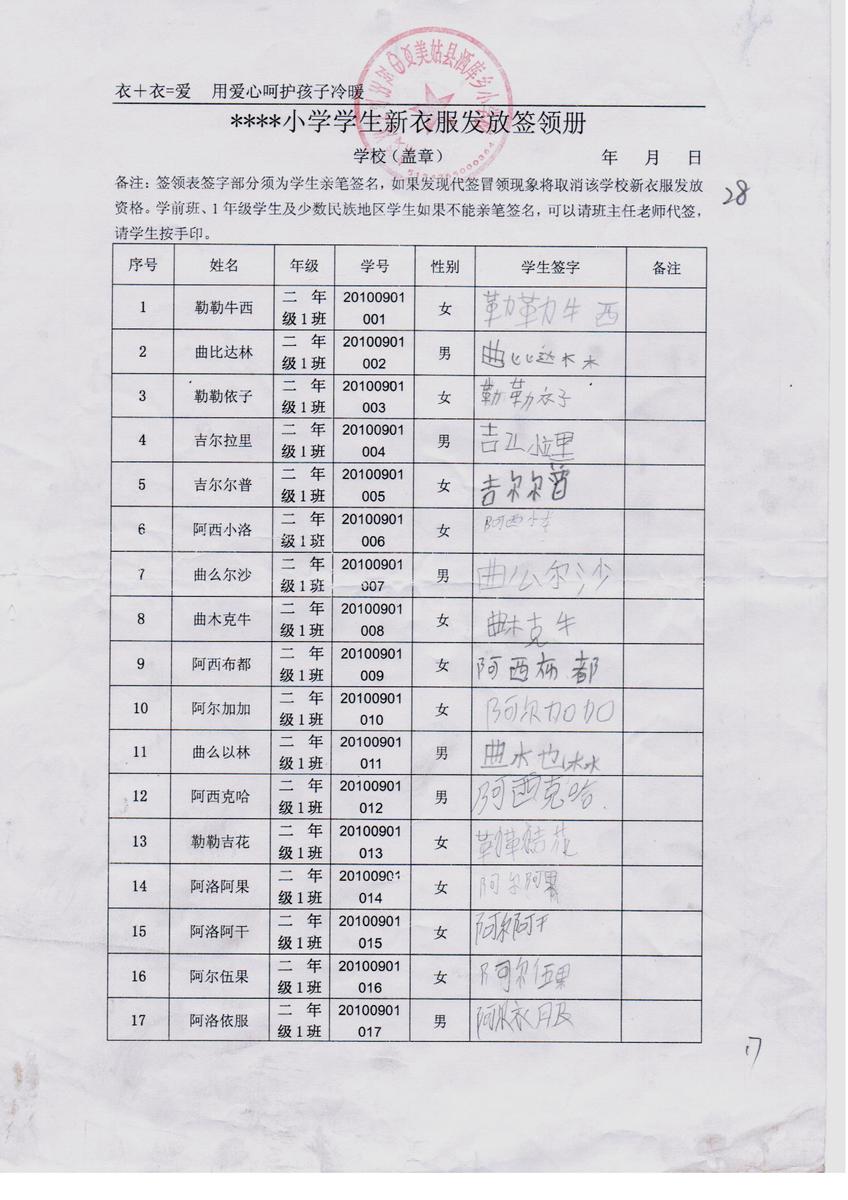 衣＋衣=爱 用爱心呵护孩子冷暖
美姑县洒库乡小
****小学学生新衣服发放签领册
学校（盖章） 年 月 日
备注：签领表签字部分须为学生亲笔签名，如果发现代签冒领现象将取消该学校新衣服发放
资格。学前班、1年级学生及少数民族地区学生如果不能亲笔签名，可以请班主任老师代签，
请学生按手印。
28
序号 姓名 年级 学号 性别 学生签字 备注
1 勒勒牛西 二年级1班 20100901001 女 勒勒牛西
2 曲比达林 二年级1班 20100901002 男 曲比达木木
3 勒勒依子 二年级1班 20100901003 女 勒勒衣子
4 吉尔拉里 二年级1班 20100901004 男 吉 拉里
5 吉尔尔普 二年级1班 20100901005 女 吉尔尔普
6 阿西小洛 二年级1班 20100901006 女 阿西小
7 曲么尔沙 二年级1班 20100901007 男 曲么尔沙
8 曲木克牛 二年级1班 20100901008 女 曲木克牛
9 阿西布都 二年级1班 20100901009 女 阿西布都
10 阿尔加加 二年级1班 20100901010 女 阿尔加加
11 曲么以林 二年级1班 20100901011 男 曲木也
12 阿西克哈 二年级1班 20100901012 男 阿西克哈.
13 勒勒吉花 二年级1班 20100901013 女 花
14 阿洛阿果 二年级1班 20100901014 女 阿尔阿果
15 阿洛阿干 二年级1班 20100901015 女 阿尔阿干
16 阿尔伍果 二年级1班 20100901016 女 阿尔伍果
17 阿洛依服 二年级1班 20100901017 男 阿 衣服
17